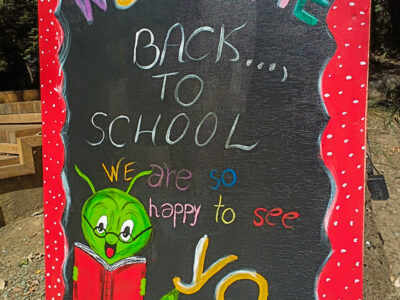 BACK...,
TO
SCHOOL
WE are so
happy to see
yo